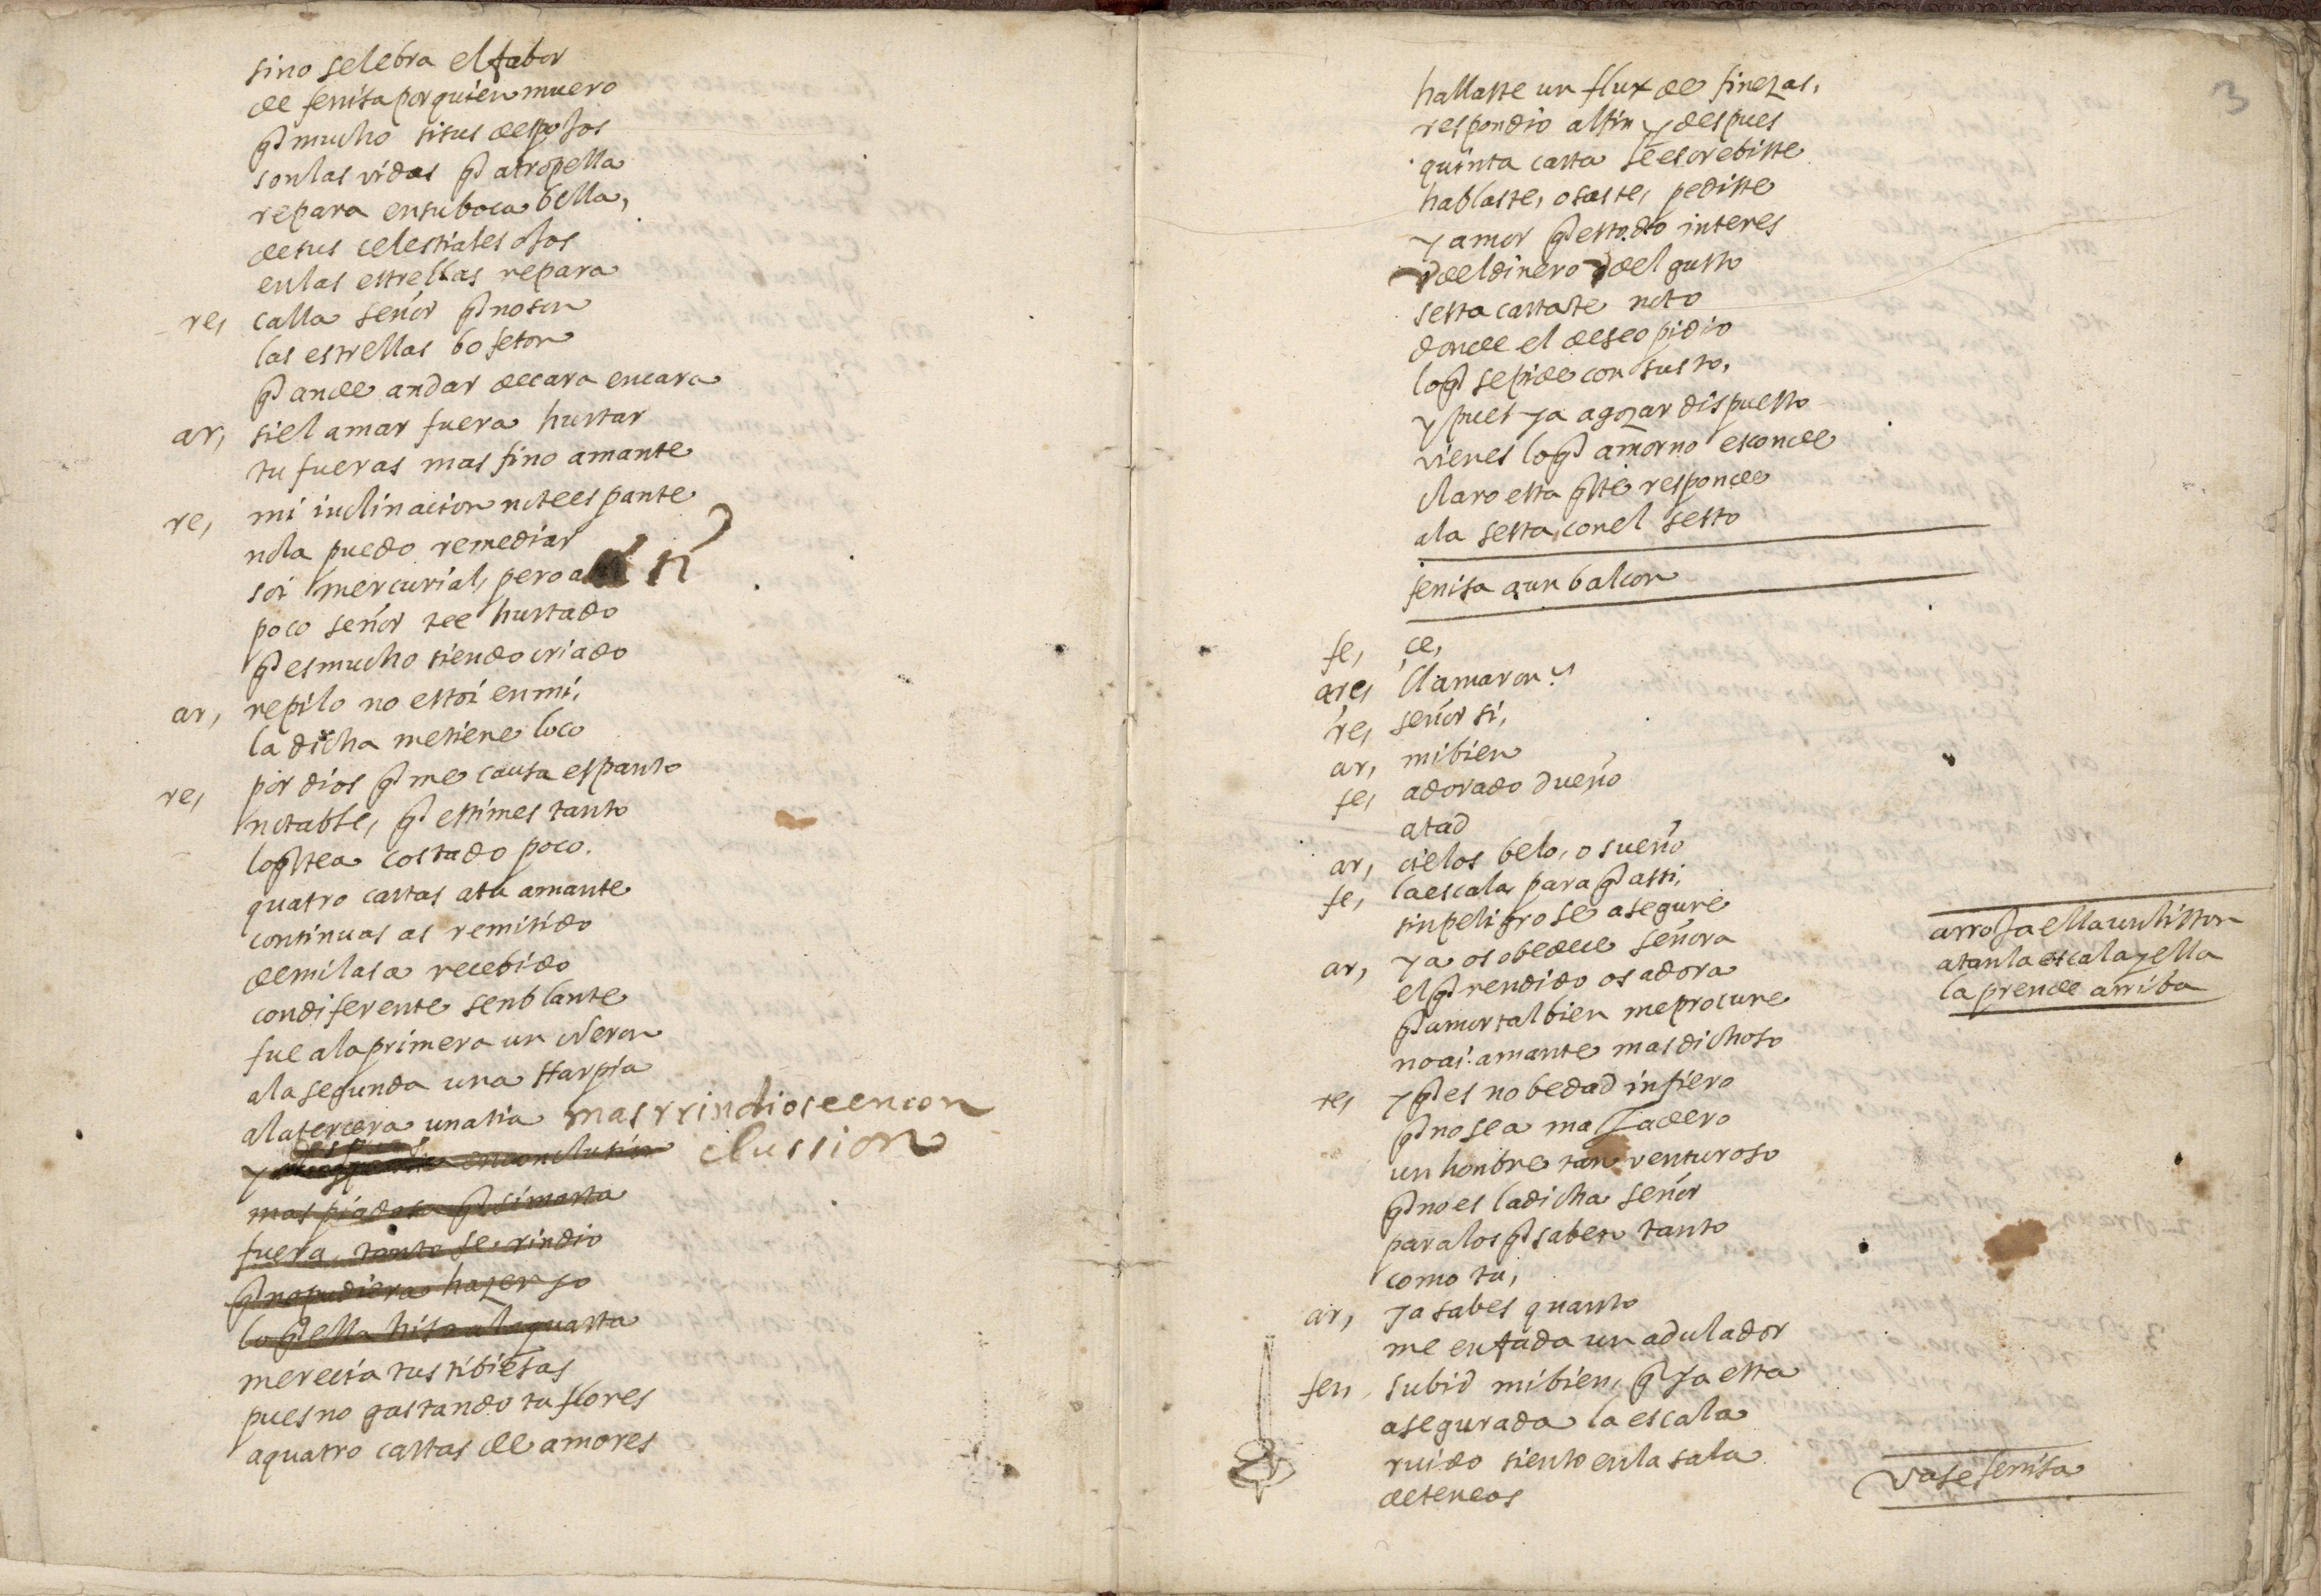 sino selebra el fabor
de fenisa por quien muero
q̃ mucho si sus despojos
son las vidas q̃ atropella
repara en su boca bella,
de sus celestiales ojos
en las estrellas repara
re, calla señor q̃ no son
las estrellas bofeton
q̃ ande andar de cara en cara
ar, si el amar fuera hurtar
tu fueras mas fino amante
re, mi inclinacion no te espante
no la puedo remediar
soi mercurial, pero a ti
poco señor te e hurtado
q̃ es mucho siendo criado
ar, repilo no estoi en mi,
la dicha me tiene loco
re, por dios q̃ me causa espanto
notable, q̃ estimes tanto
lo q̃ te a costado poco.
quatro cartas a tu amante
continuas as remitido
de mil as a recebido
con diferente senblante
fue a la primera un Neron
a la segunda una Harpia
a la tercera una tia mas rrindiose en con
y despues en conclusion clussion
mas piadosa q̃ si marta
fuera, tanto se rindio
q̃ no pudiera hazer yo
lo q̃ ella hiso a la quarta
merecia tus tibiesas
pues no gastando tu flores
a quatro cartas de amores
3
hallaste un flux de finezas,
respondio al fin y despues
quinta carta le escrebiste
hablaste, osaste, pediste
y amor q̃ es todo interes
del dinero y del gusto
sesta carta te noto
donde el deseo pidio
lo q̃ se pide con susto,
y pues ya a gozar dispuesto
vienes lo q̃ amor no esconde
claro esta q̃ te responde
a la sesta con el sesto
fenisa a un balcon
fe, ce,
ar, llamaron?
re, señor si,
ar, mi bien
fe, adorado dueño
atad
ar, cielos belo, o sueño
fe, la escala para q̃ assi,
sin peligro se asegure
arroja ella un liston
atan la escala y ella
la prende arriba
ar, ya os obedece señora
el q̃ rendido os adora
q̃ amor tal bien me procure
no ai amante mas dichoso
re, y q̃ es nobedad infiero
q̃ no sea majadero
un honbre tan venturoso
q̃ no es la dicha señor
para los q̃ saben tanto
como tu,
ar, ya sabes quanto
me enfada un adulador
fen, subid mi bien, q̃ ya esta
asegurada la escala
ruido siento en la sala
vase fenisa
deteneos